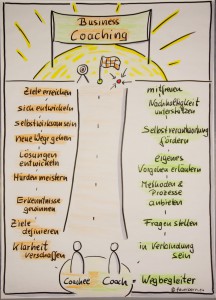 Business
Coaching
Ziele erreichen
sich entwickeln
Selbstwirksam sein
neue Wege gehen
Lösungen
entwickeln
Hürden meistern
Erkenntnisse
gewinnen
Ziele
definieren
Klarheit
verschaffen
mitfreuen
Nachhaltigkeit
unterstützen
Selbstverantwortung
fördern
eigenes
Vorgehen erläutern
Methoden &
Prozesse
anbieten
Fragen stellen
in Verbindung
sein
Coachee
Coach
Wegbegleiter